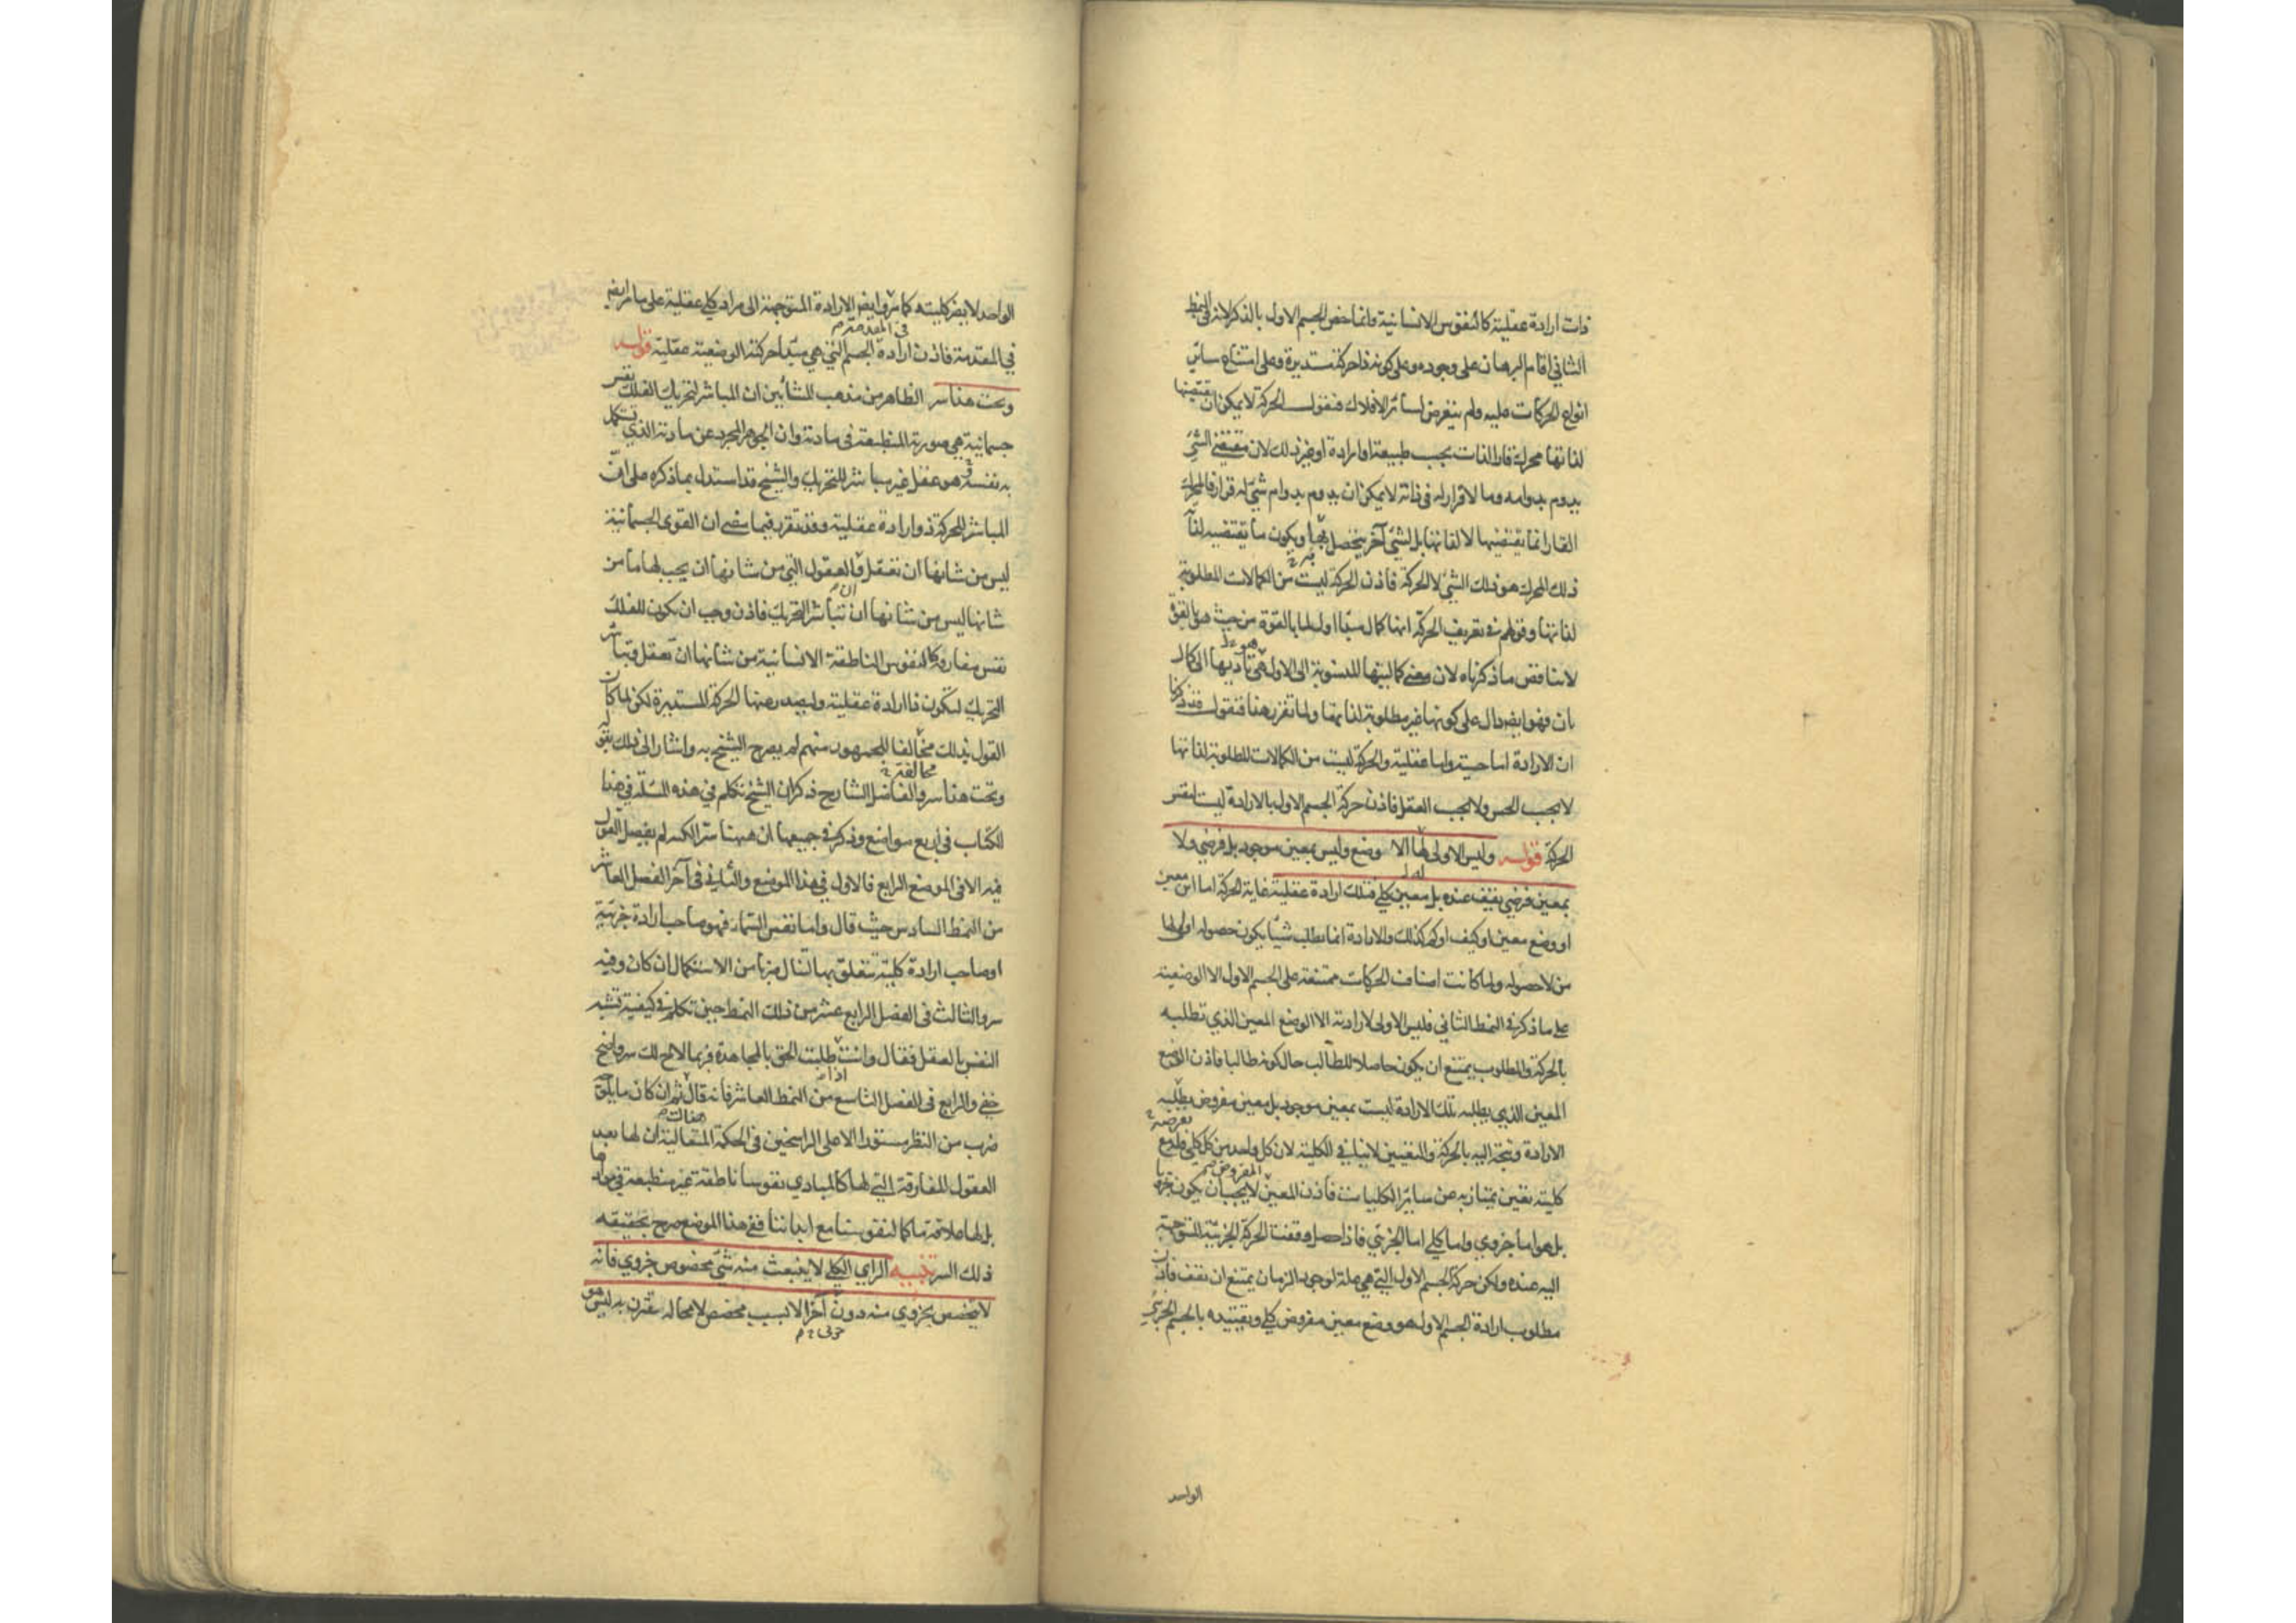 ذات ارادة عقلية كالنفوس الانسانية وانما خص الجسم الاول بالذكر لانه في النمط
الثاني اقام البرهان على وجوده وعلى كونه ذا حركة مستديرة وعلى امتناع سائر
انواع الحركات عليه ولم يتعرض لسائر الافلاك فنقول الحركة لا يمكن ان يقتضيها
لذاتها محرك قار الذات بحسب طبيعة او ارادة او غير ذلك لان مقتضى الشئ
يدوم بدوامه وما لا قرار له في ذاته لا يمكن ان يدوم بدوام شئ له قرار فالمحرك
القار انما يقتضيها لا لذاتها بل لشئ آخر يتحصل بها ويكون ما يقتضيه لذات
ذلك المحرك هو ذلك الشئ لا الحركة فاذن الحركة ليست من الكمالات المطلوبة
لذاتها وقولهم في تعريف الحركة انها كمال اول لما بالقوة من حيث هو بالقوة
لا يناقض ما ذكرناه لان معنى كماليتها المنسوبة الى الاول هو تأديها الى كمال
ثان فهو ايضا دال على كونها غير مطلوبة لذاتها ولما تقرر هذا فنقول قد ذكرنا
ان الارادة اما حسية واما عقلية والحركة ليست من الكمالات المطلوبة لذاتها
لا بحسب الحس ولا بحسب العقل فاذن حركة الجسم الاول بالارادة ليست لنفس
الحركة قوله وليس الاولى لها الا وضع وليس بمعين موجود بل فرضي ولا
بمعين فرضي يقف عنده بل معين كلي فتلك ارادة عقلية غاية الحركة اما اين معين
او وضع معين او كيف او كم كذلك والارادة انما تطلب شيئا يكون حصوله اولى لها
من لا حصوله ولما كانت اصناف الحركات ممتنعة على الجسم الاول الا الوضعية
على ما ذكر في النمط الثاني فليس الاولى لارادته الا الوضع المعين الذي تطلبه
بالحركة والمطلوب يمتنع ان يكون حاصلا للطالب حال كونه طالبا فاذن الوضع
المعين الذي يطلبه تلك الارادة ليست بمعين موجود بل معين مفروض يطلبه
الارادة ويتجه اليه بالحركة والتعيين لا ينافي الكلية لان كل واحد من كل كلي فله مع
كليته تعين يمتاز به عن سائر الكليات فاذن المعين المفروض لا يجب ان يكون جزويا
بل هو اما جزوي واما كلي اما الجزئي فاذا حصل وقفت الحركة الجزئية المتوجهة
اليه عنده ولكن حركة الجسم الاول التي هي علة لوجود الزمان يمتنع ان تقف فاذن
مطلوب ارادة الجسم الاول هو وضع معين مفروض كلي وتقييده بالجسم الجزئي
الواحد
الواحد لا يضر كليته كما مر وايضا الارادة المتوجهة الى مراد كلي عقلية على ما مر ايضا
في المقدمة فاذن ارادة الجسم التي هي مبدأ حركته الوضعية عقلية قوله
وتحت هذا سر الظاهر من مذهب المشائين ان المباشر لتحريك الفلك نفس
جسمانية هي صورته المنطبعة في مادته وان الجوهر المجرد عن مادته الذي يستكمل
به نفسه هو عقل غير مباشر للتحريك والشيخ قد استدل بما ذكره على ان
المباشر للحركة ذو ارادة عقلية وقد تقرر فيما مضى ان القوى الجسمانية
ليس من شانها ان تعقل فالعقول التي من شانها ان يجب لها ما من
شانها ليس من شانها ان تباشر التحريك فاذن وجب ان يكون للفلك
نفس مفارقة كالنفوس الناطقة الانسانية من شانها ان تعقل وتباشر
التحريك لتكون ذا ارادة عقلية وليصدر عنها الحركة المستديرة لكن لما كان
القول بذلك مخالفا للجمهور منهم لم يصرح الشيخ به واشار الى ذلك بقوله
وتحت هذا سر والفاضل الشارح ذكر ان الشيخ تكلم في هذه المسئلة في هذا
الكتاب في اربع مواضع وذكر في جميعها ان ههنا سرا لكنه لم يفصل القول
فيه الا في الموضع الرابع فالاول في هذا الموضع والثاني في آخر الفصل العاشر
من النمط السادس حيث قال واما نفس السماء فهو صاحب ارادة جزئية
او صاحب ارادة كلية تتعلق بها لتنال ضربا من الاستكمال ان كان وفيه
سر والثالث في الفصل الرابع عشر من ذلك النمط حين تكلم في كيفية تشبه
النفس بالعقل فقال وانت اذا طلبت الحق بالمجاهدة فربما لاح لك سر واضح
خفي والرابع في الفصل التاسع من النمط العاشر فانه قال ثم ان كان ما يلوح
ضرب من النظر مستورا الا على الراسخين في الحكمة المتعالية ان لها بعد
العقول المفارقة التي لها كالمبادي نفوسا ناطقة غير منطبعة في موادها
بل لها علاقة ما كما لنفوسنا مع ابداننا ففي هذا الموضع صرح بحقيقة
ذلك السر تنبيه الراي الكلي لا ينبعث منه شئ مخصوص جزوي فانه
لا يتخصص بجزوي منه دون آخر الا بسبب مخصص لا محالة يقترن به ليس هو